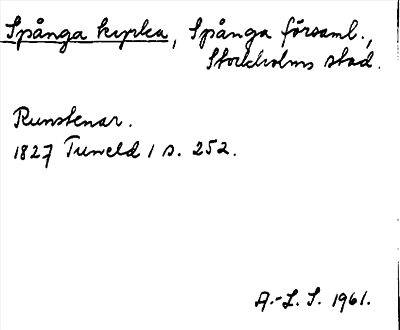 Spånga kyrka, Spånga församl.,
Stockholms stad.
Runstenar.
1827 Tuneld 1 s. 252.
A.-L. S. 1961.